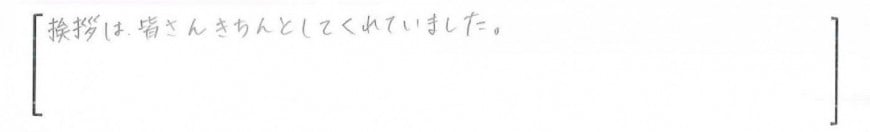 挨拶は、皆さんきちんとしてくれていました。